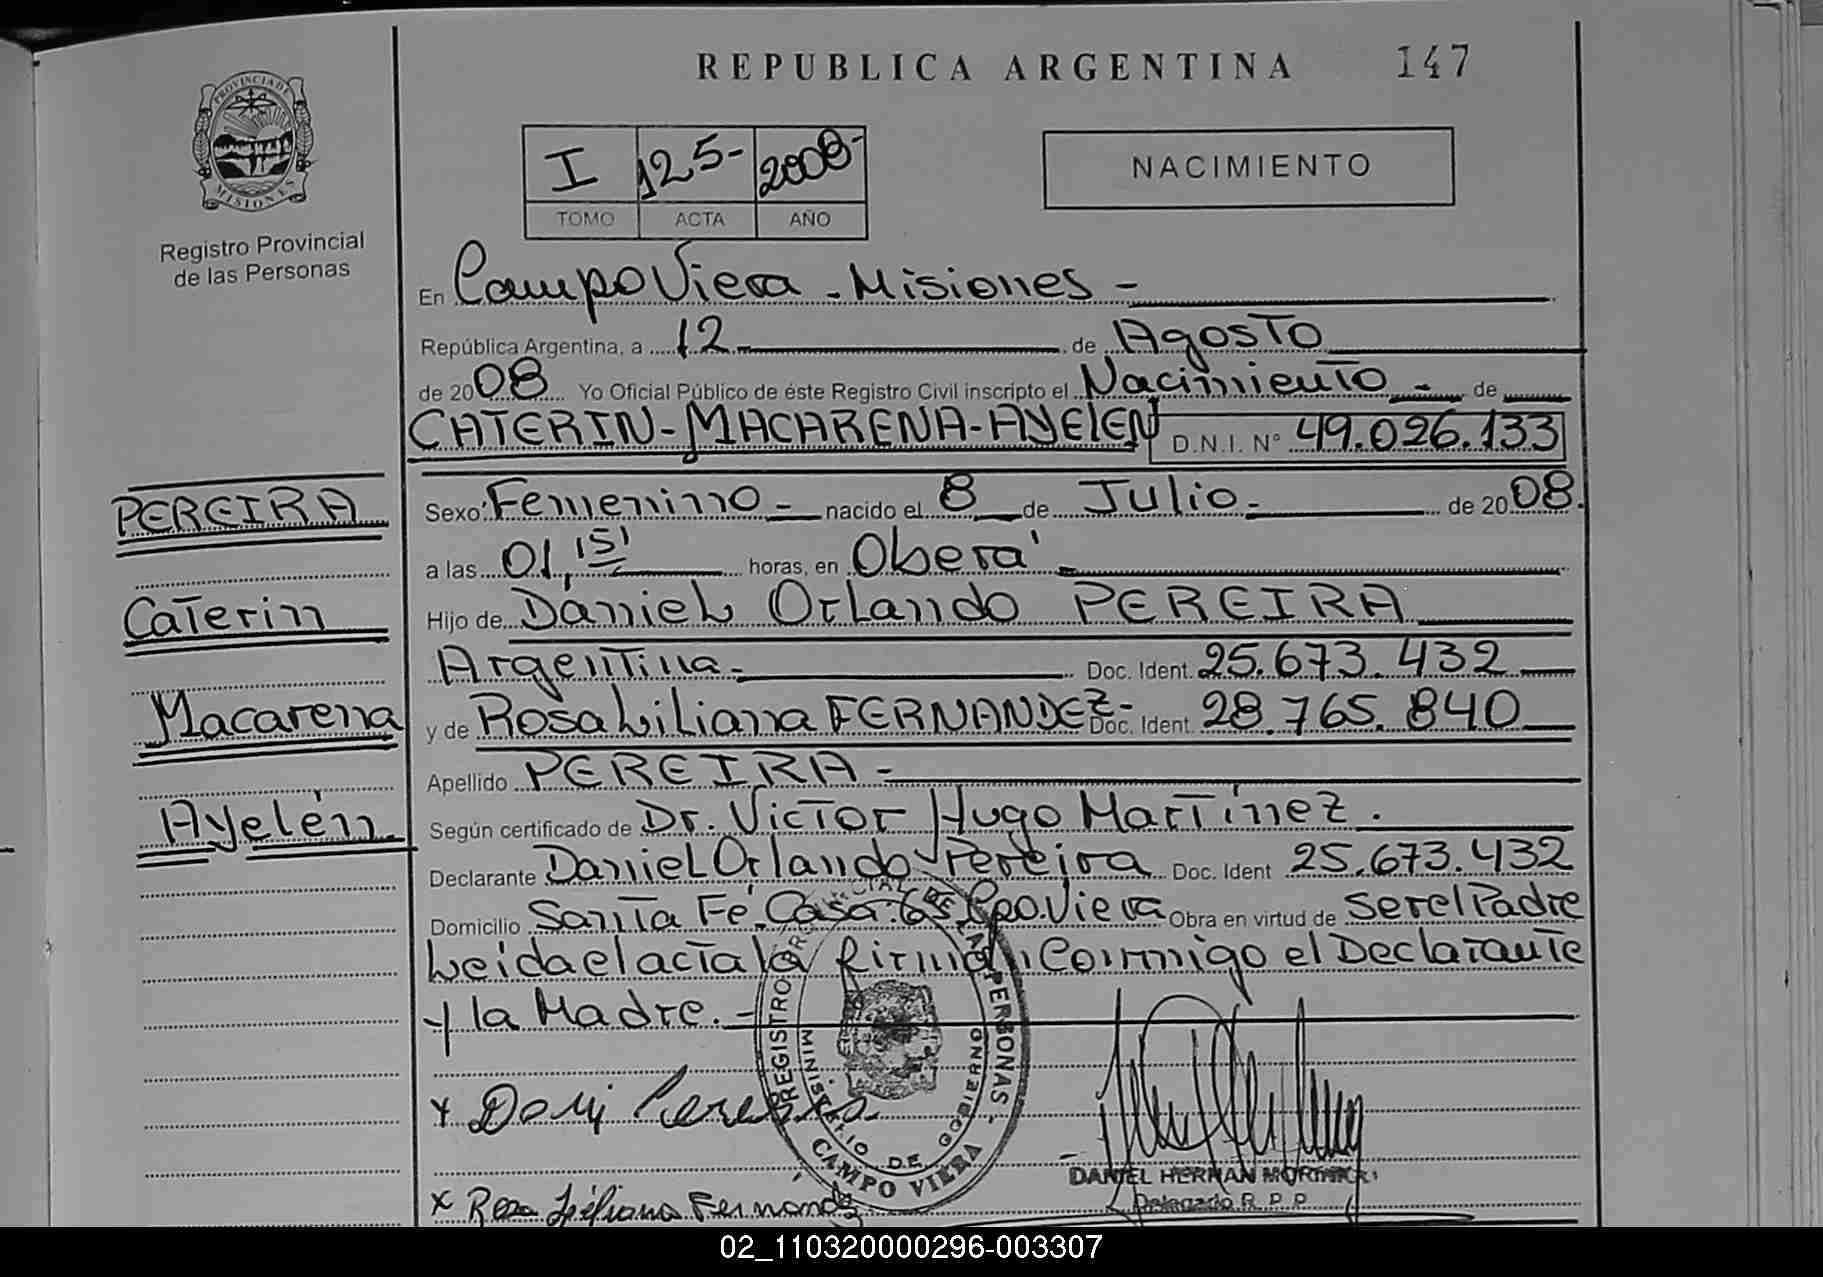 REPUBLICA ARGENTINA 147
PROVINCIA DE
MISIONES
Registro Provincial
de las Personas
I 125- 2008-
TOMO ACTA AÑO
NACIMIENTO
En Campo Viera - Misiones -
República Argentina, a 12 de Agosto
de 2008 Yo Oficial Público de éste Registro Civil inscripto el Nacimiento - de
CATERIN-MACARENA-AYELEN D.N.I. N° 49.026.133
PEREIRA
Caterin
Macarena
Ayelén
Sexo: Femenino - nacido el 8 de Julio - de 2008.
a las 01,15' horas, en Oberá -
Hijo de Daniel Orlando PEREIRA
Argentina - Doc. Ident. 25.673.432
y de Rosa Liliana FERNANDEZ - Doc. Ident. 28.765.840
Apellido PEREIRA -
Según certificado de Dr. Victor Hugo Martínez.
Declarante Daniel Orlando Pereira Doc. Ident 25.673.432
Domicilio Santa Fé. Casa: 65 Cpo. Viera Obra en virtud de ser el Padre
Leida el acta la firman Conmigo el Declarante
y la Madre. -
REGISTRO DE LAS PERSONAS -
MINISTERIO DE GOBIERNO
CAMPO VIERA
x
DANIEL HERNAN
Delegado R. P. P.
x Rosa Liliana Fernandez
02_110320000296-003307